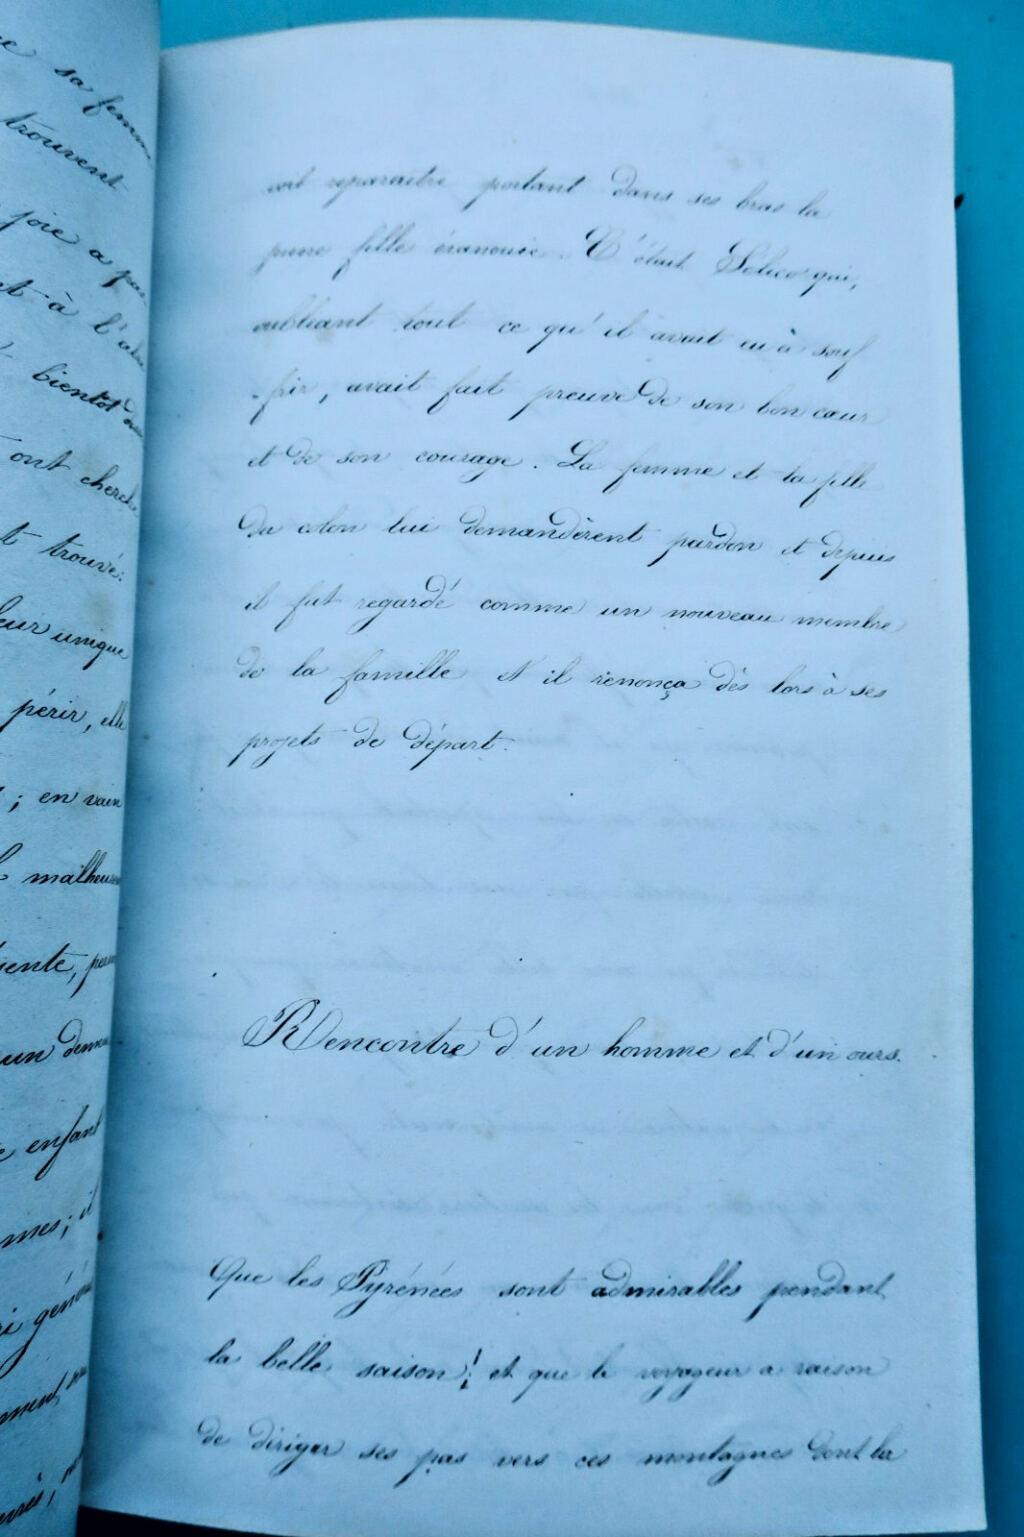 sa femme
trouvent
joie a
et à l'
bientôt
ont cherché
trouvé:
leur unique
périr, elle
; en vain
malheureu
sente,
un
enfant
mes; il
géné
ment
voit reparaitre portant dans ses bras la
jeune fille évanouie. C'était Sélico qui,
oubliant tout ce qu'il avait eu à souf
-frir, avait fait preuve de son bon cœur
et de son courage. La femme et la fille
du colon lui demandèrent pardon et depuis
il fut regardé comme un nouveau membre
de la famille et il renonça dès lors à ses
projets de départ.
Rencontre d'un homme et d'un ours.
Que les Pyrénées sont admirables pendant
la belle saison! et que le voyageur a raison
de diriger ses pas vers ces montagnes dont la